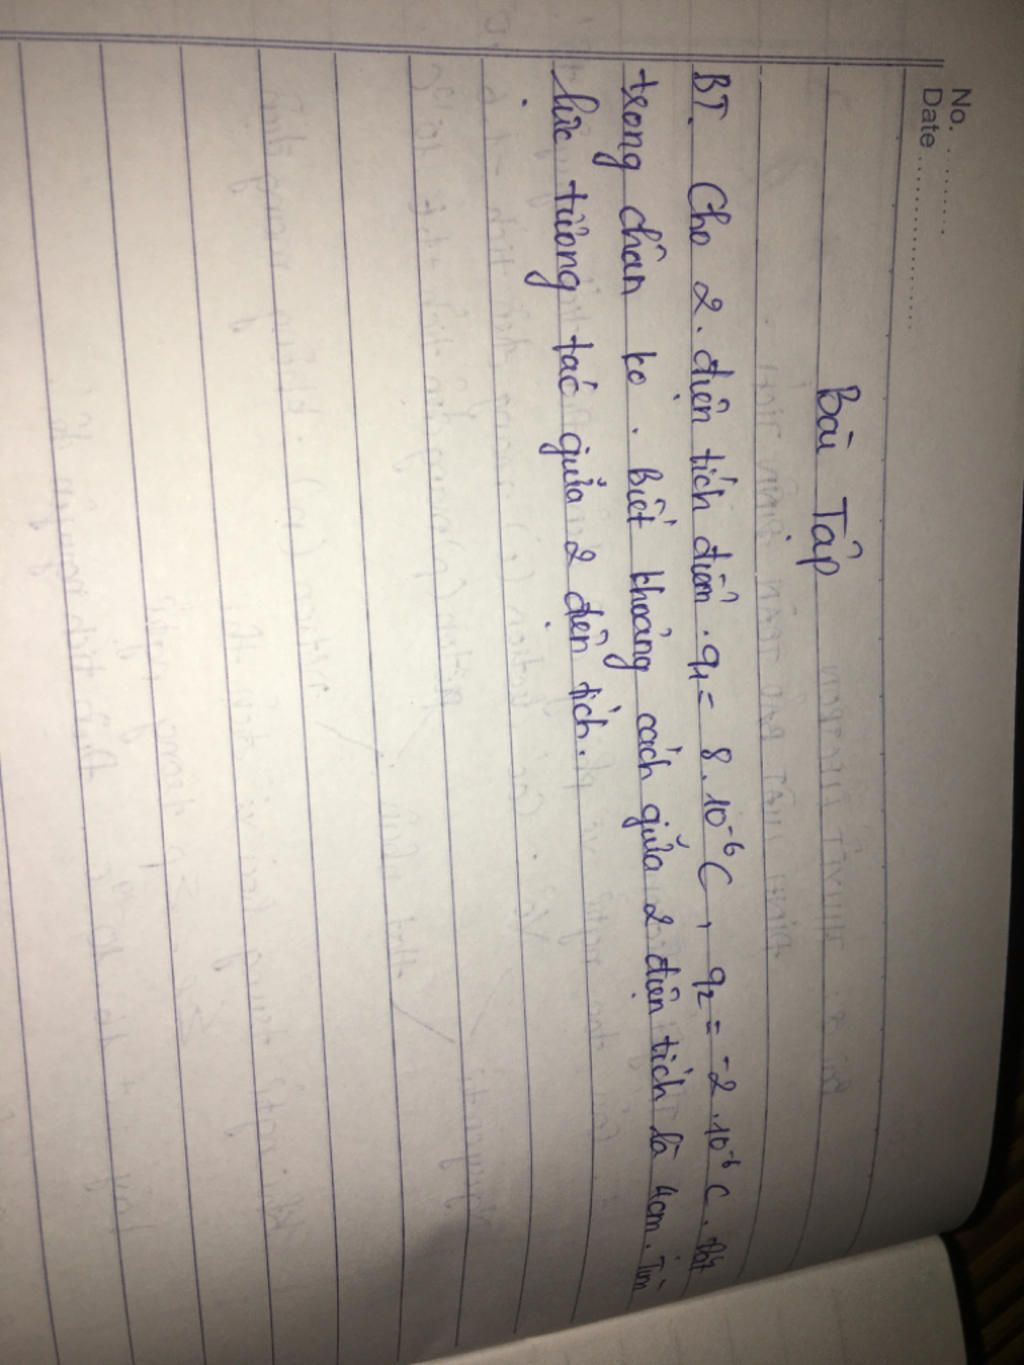 No. ..........
Date ......................
Bài Tập
BT. Cho 2 điện tích điểm. q1 = 8.10⁻⁶ C, q2 = -2.10⁻⁶ C. Đặt
trong chân ko. Biết khoảng cách giữa 2 điện tích là 4cm. Tìm
lực tương tác giữa 2 điện tích.